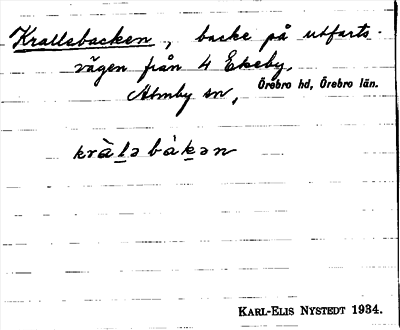 Krallebacken, backe på utfarts-
vägen från 4 Ekeby,
Almby sn, Örebro hd, Örebro län.
kràlə bàkən
KARL-ELIS NYSTEDT 1934.